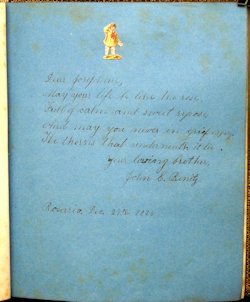 Dear Josephine,
May your life be like the rose,
Full of calm and sweet repose
And may you never in grief
The thorns that underneath it lie.
Your loving brother,
John C.
Dec. 27th